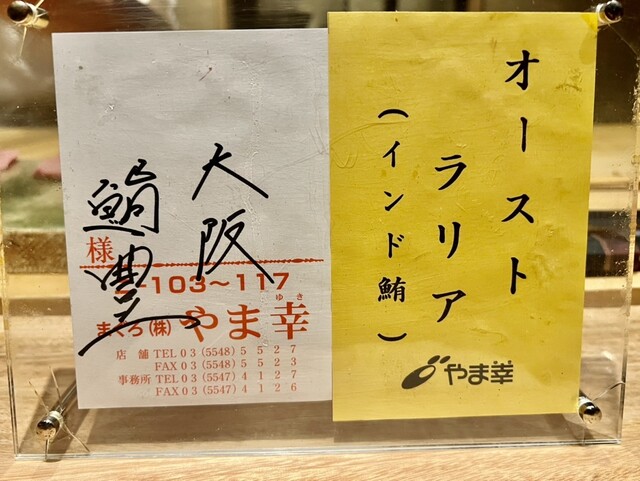 大阪
鮨豊
様
-103~117
まぐろ(株)やま幸
ゆき
店舗 TEL03(5548)5527
FAX03(5548)5523
事務所 TEL03(5547)4127
FAX03(5547)4126
オースト
ラリア
(インド鮪)
やま幸